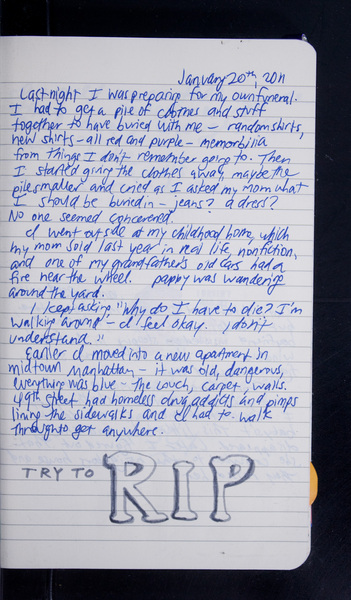 January 20th, 2011
Last night I was preparing for my own funeral.
I had to get a pile of clothes and stuff
together to have buried with me - random shirts,
new shirts - all red and purple - memorbilia
from things I don't remember going to. Then
I started giving the clothes away, maybe the
pile smaller and cried as I asked my mom what
I should be buried in - jeans? a dress?
No one seemed concerened.
I went outside at my childhood home, which
my mom sold last year in real life, nonfiction,
and one of my grandfather's old cars had a
fire near the wheel. pappy was wandering
around the yard.
I kept asking "Why do I have to die? I'm
walking around - I feel okay. I don't
understand."
Earlier I moved into a new apartment in
midtown Manhattan - it was old, dangerous,
everything was blue - the couch, carpet, walls.
49th street had homeless drug addicts and pimps
lining the sidewalks and I had to walk
through to get anywhere.
TRY TO RIP